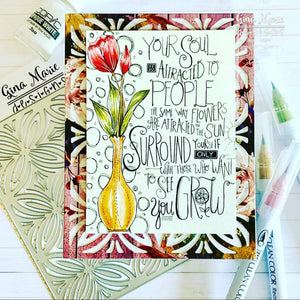 Gina Marie
Designs
YOUR SOUL
IS ATTRACTED TO
PEOPLE
THE SAME WAY FLOWERS
ARE ATTRACTED TO THE SUN
SURROUND YOURSELF
ONLY
WITH THOSE WHO WANT
TO SEE
YOU GROW
Gina Marie